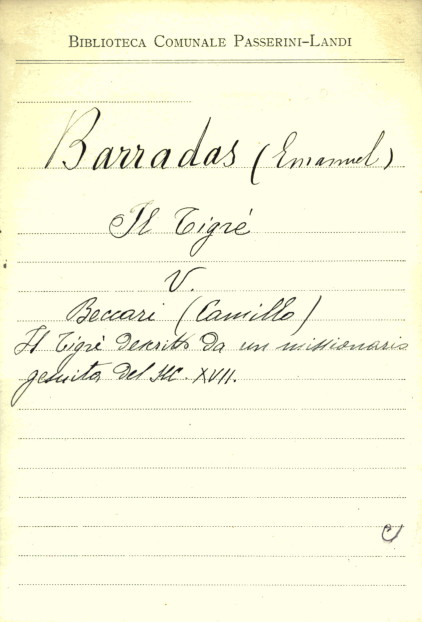 BIBLIOTECA COMUNALE PASSERINI-LANDI
Barradas (Emanuel)
Il Tigré
V.
Beccari (Camillo)
Il Tigrè descritto da un missionario
gesuita del sec. XVII.